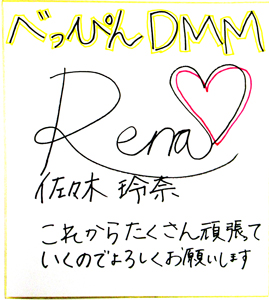 べっぴんDMM
Rena
佐々木 玲奈
これからたくさん頑張って
いくのでよろしくお願いします